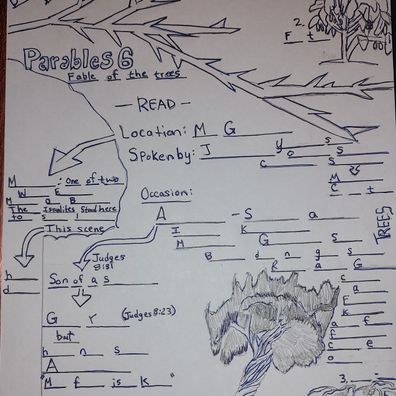 2.
F t
Parables 6
Fable of the trees
— READ —
Location: M G
Spoken by: J y s
o s
c s
M
C t
M : one of two
W E
M a B
The Israelites stand here
to s
This scene
h
d
Occasion:
A - S a
I K
M G S
B d n g s
R a G
TREES
Judges
8:31
Son of a s
G r (Judges 8:23)
but
h n s
A
"M f is K"
c
a
F
K
a f
f
c e
o
3.